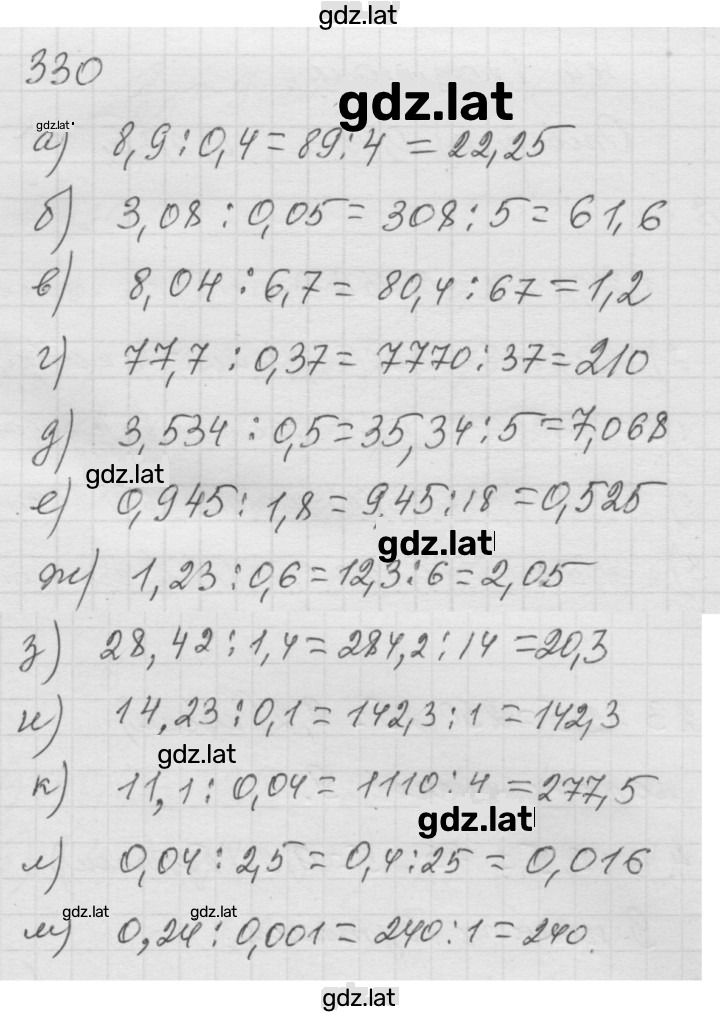 gdz.lat
330
gdz.lat
gdz.lat
а) 8,9 : 0,4 = 89 : 4 = 22,25
б) 3,08 : 0,05 = 308 : 5 = 61,6
в) 8,04 : 6,7 = 80,4 : 67 = 1,2
г) 77,7 : 0,37 = 7770 : 37 = 210
д) 3,534 : 0,5 = 35,34 : 5 = 7,068
gdz.lat
е) 0,945 : 1,8 = 9,45 : 18 = 0,525
gdz.lat
ж) 1,23 : 0,6 = 12,3 : 6 = 2,05
з) 28,42 : 1,4 = 284,2 : 14 = 20,3
и) 14,23 : 0,1 = 142,3 : 1 = 142,3
gdz.lat
к) 11,1 : 0,04 = 1110 : 4 = 277,5
gdz.lat
л) 0,04 : 2,5 = 0,4 : 25 = 0,016
gdz.lat gdz.lat
м) 0,24 : 0,001 = 240 : 1 = 240.
gdz.lat